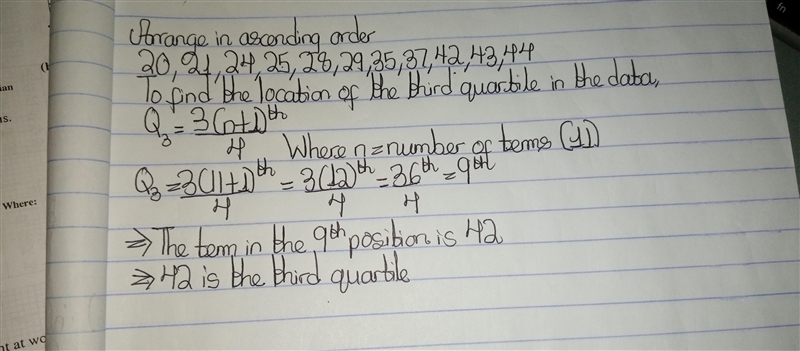 Arrange in ascending order
20, 21, 24, 25, 28, 29, 35, 37, 42, 43, 44
To find the location of the third quartile in the data,
Q₃ = 3(n+1)th / 4 Where n = number of terms (11)
Q₃ = 3(11+1)th / 4 = 3(12)th / 4 = 36th / 4 = 9th
⇒ The term in the 9th position is 42
⇒ 42 is the third quartile
Where: